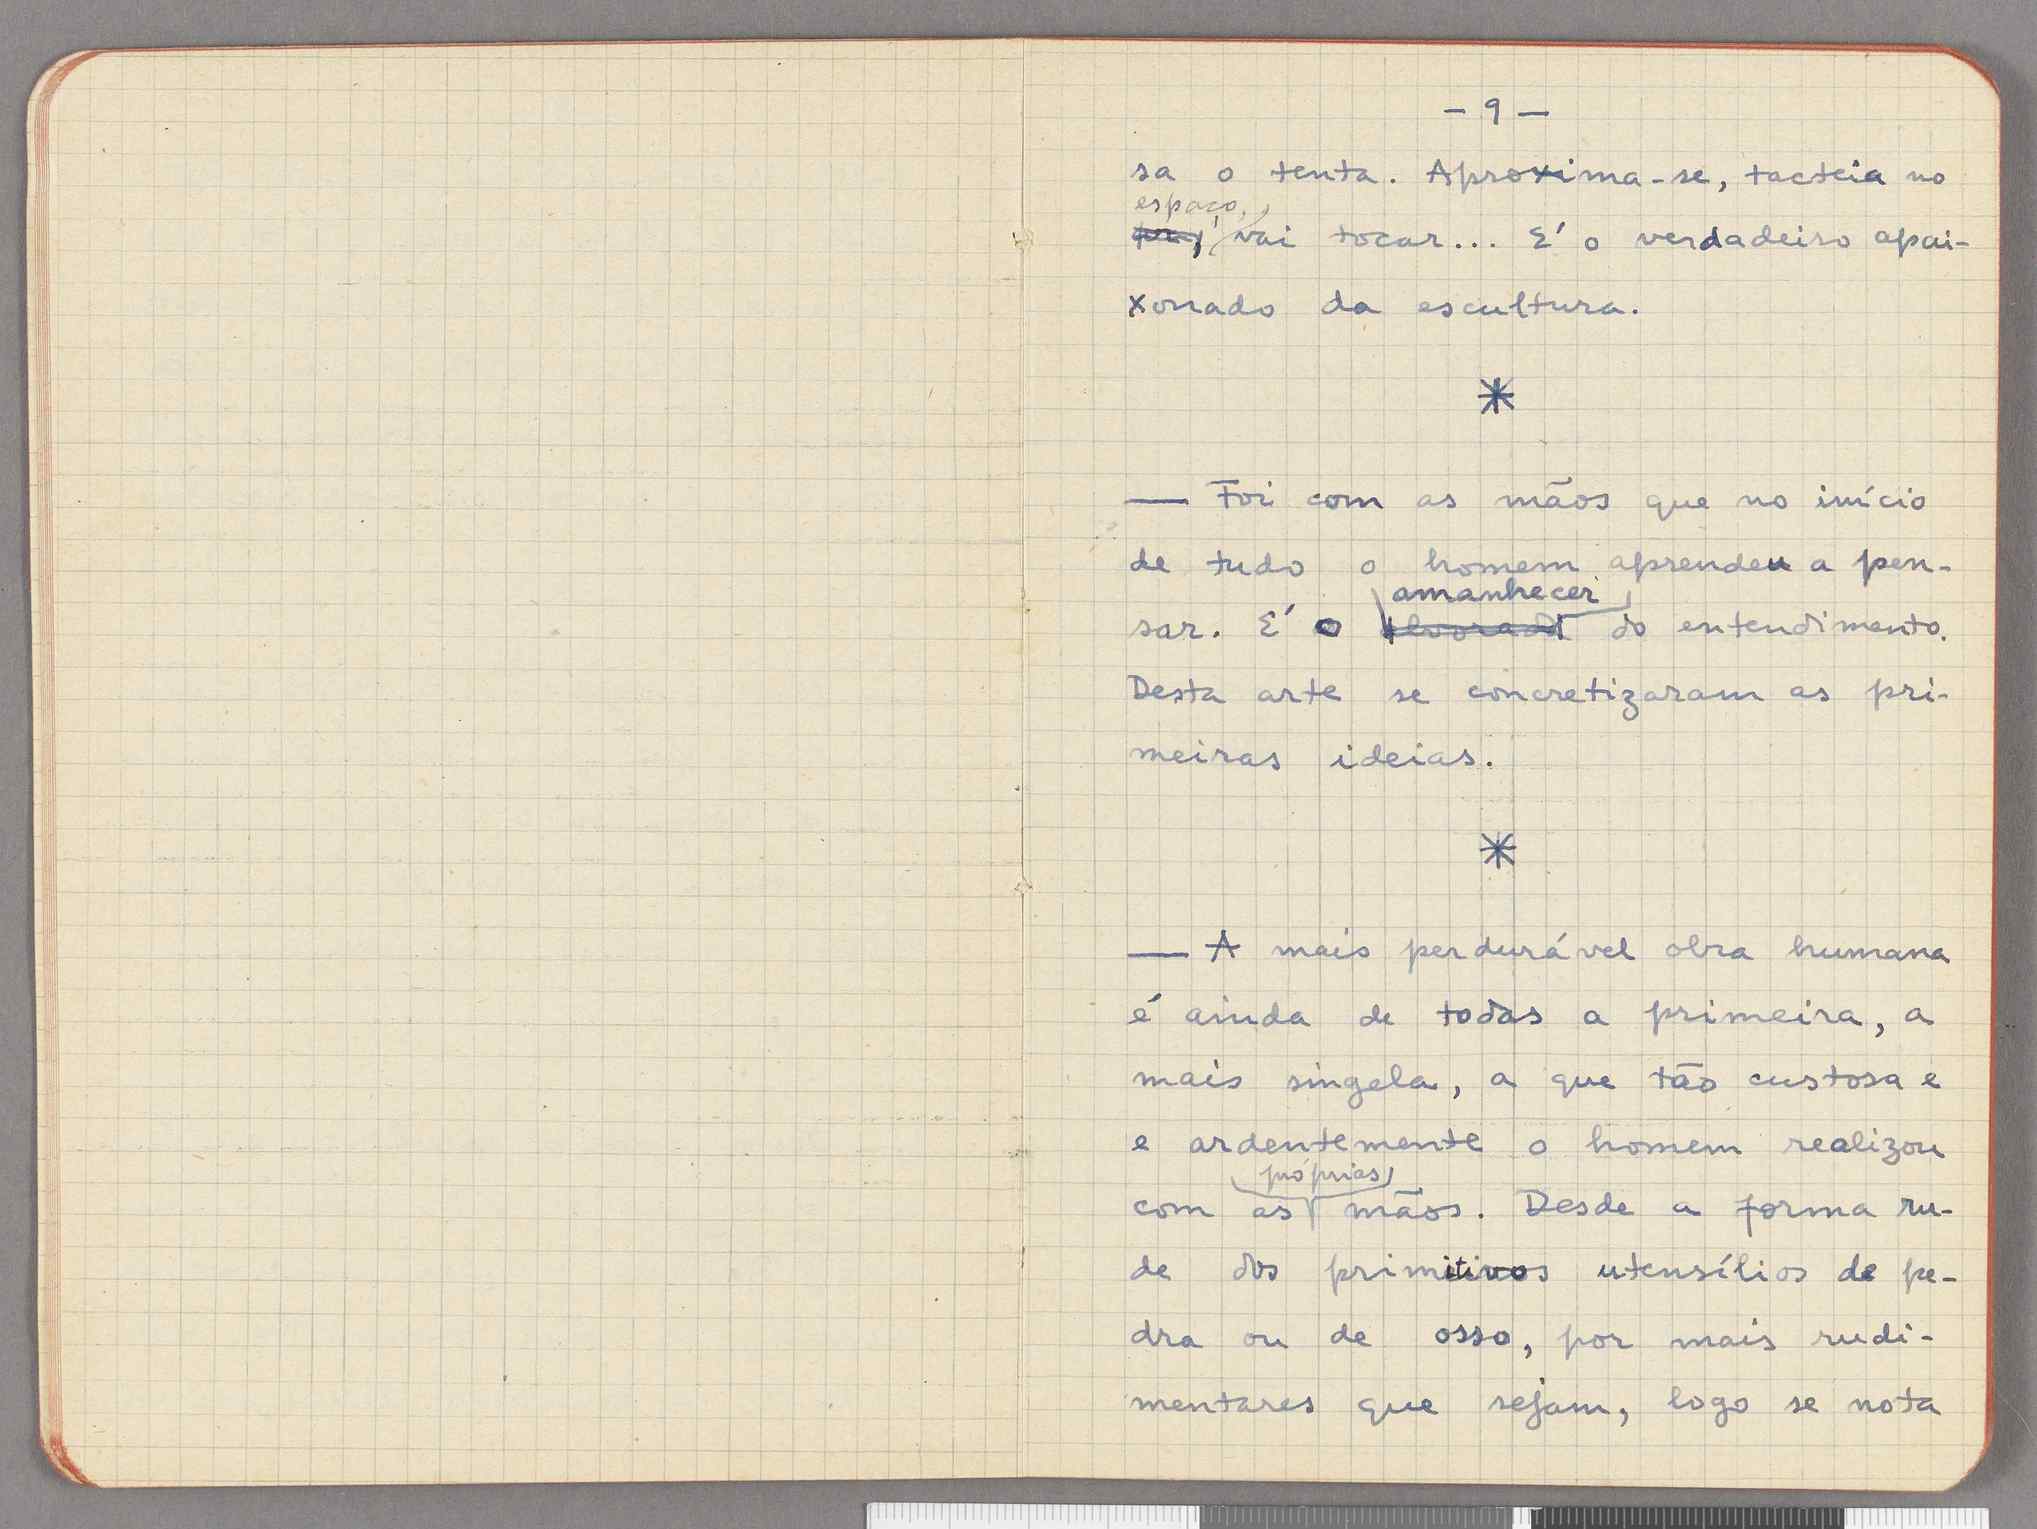 — 9 —
sa o tenta. Aproxima-se, tacteia no
espaço,
vai tocar... E' o verdadeiro apai-
xonado da escultura.
*
— Foi com as mãos que no início
de tudo o homem aprendeu a pen-
amanhecer
sar. E' o alvorada do entendimento.
Desta arte se concretizaram as pri-
meiras ideias.
*
— A mais perdurável obra humana
é ainda de todas a primeira, a
mais singela, a que tão custosa e
e ardentemente o homem realizou
próprias
com as mãos. Desde a forma ru-
de dos primitivos utensílios de pe-
dra ou de osso, por mais rudi-
mentares que sejam, logo se nota